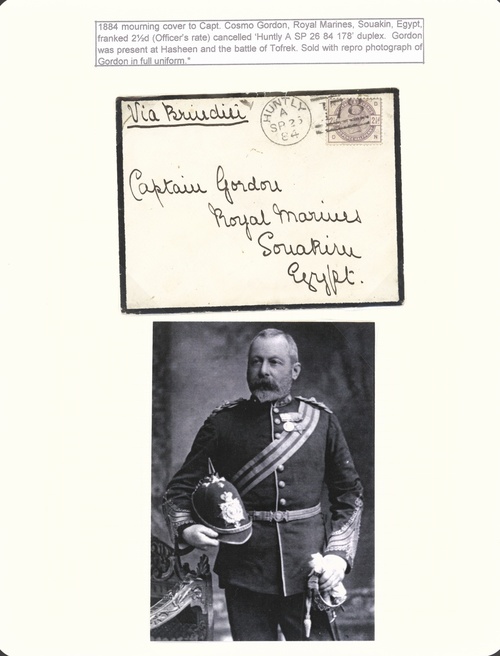 1884 mourning cover to Capt. Cosmo Gordon, Royal Marines, Souakin, Egypt,
franked 2½d (Officer's rate) cancelled 'Huntly A SP 26 84 178' duplex. Gordon
was present at Hasheen and the battle of Tofrek. Sold with repro photograph of
Gordon in full uniform."
Via Brindisi
HUNTLY
A
SP 26
84
178
Captain Gordon
Royal Marines
Souakin
Egypt.